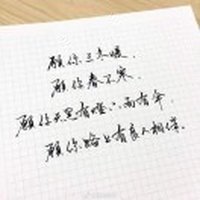 愿你三冬暖，
愿你春不寒，
愿你天黑有灯，下雨有伞，
愿你路上有良人相伴。